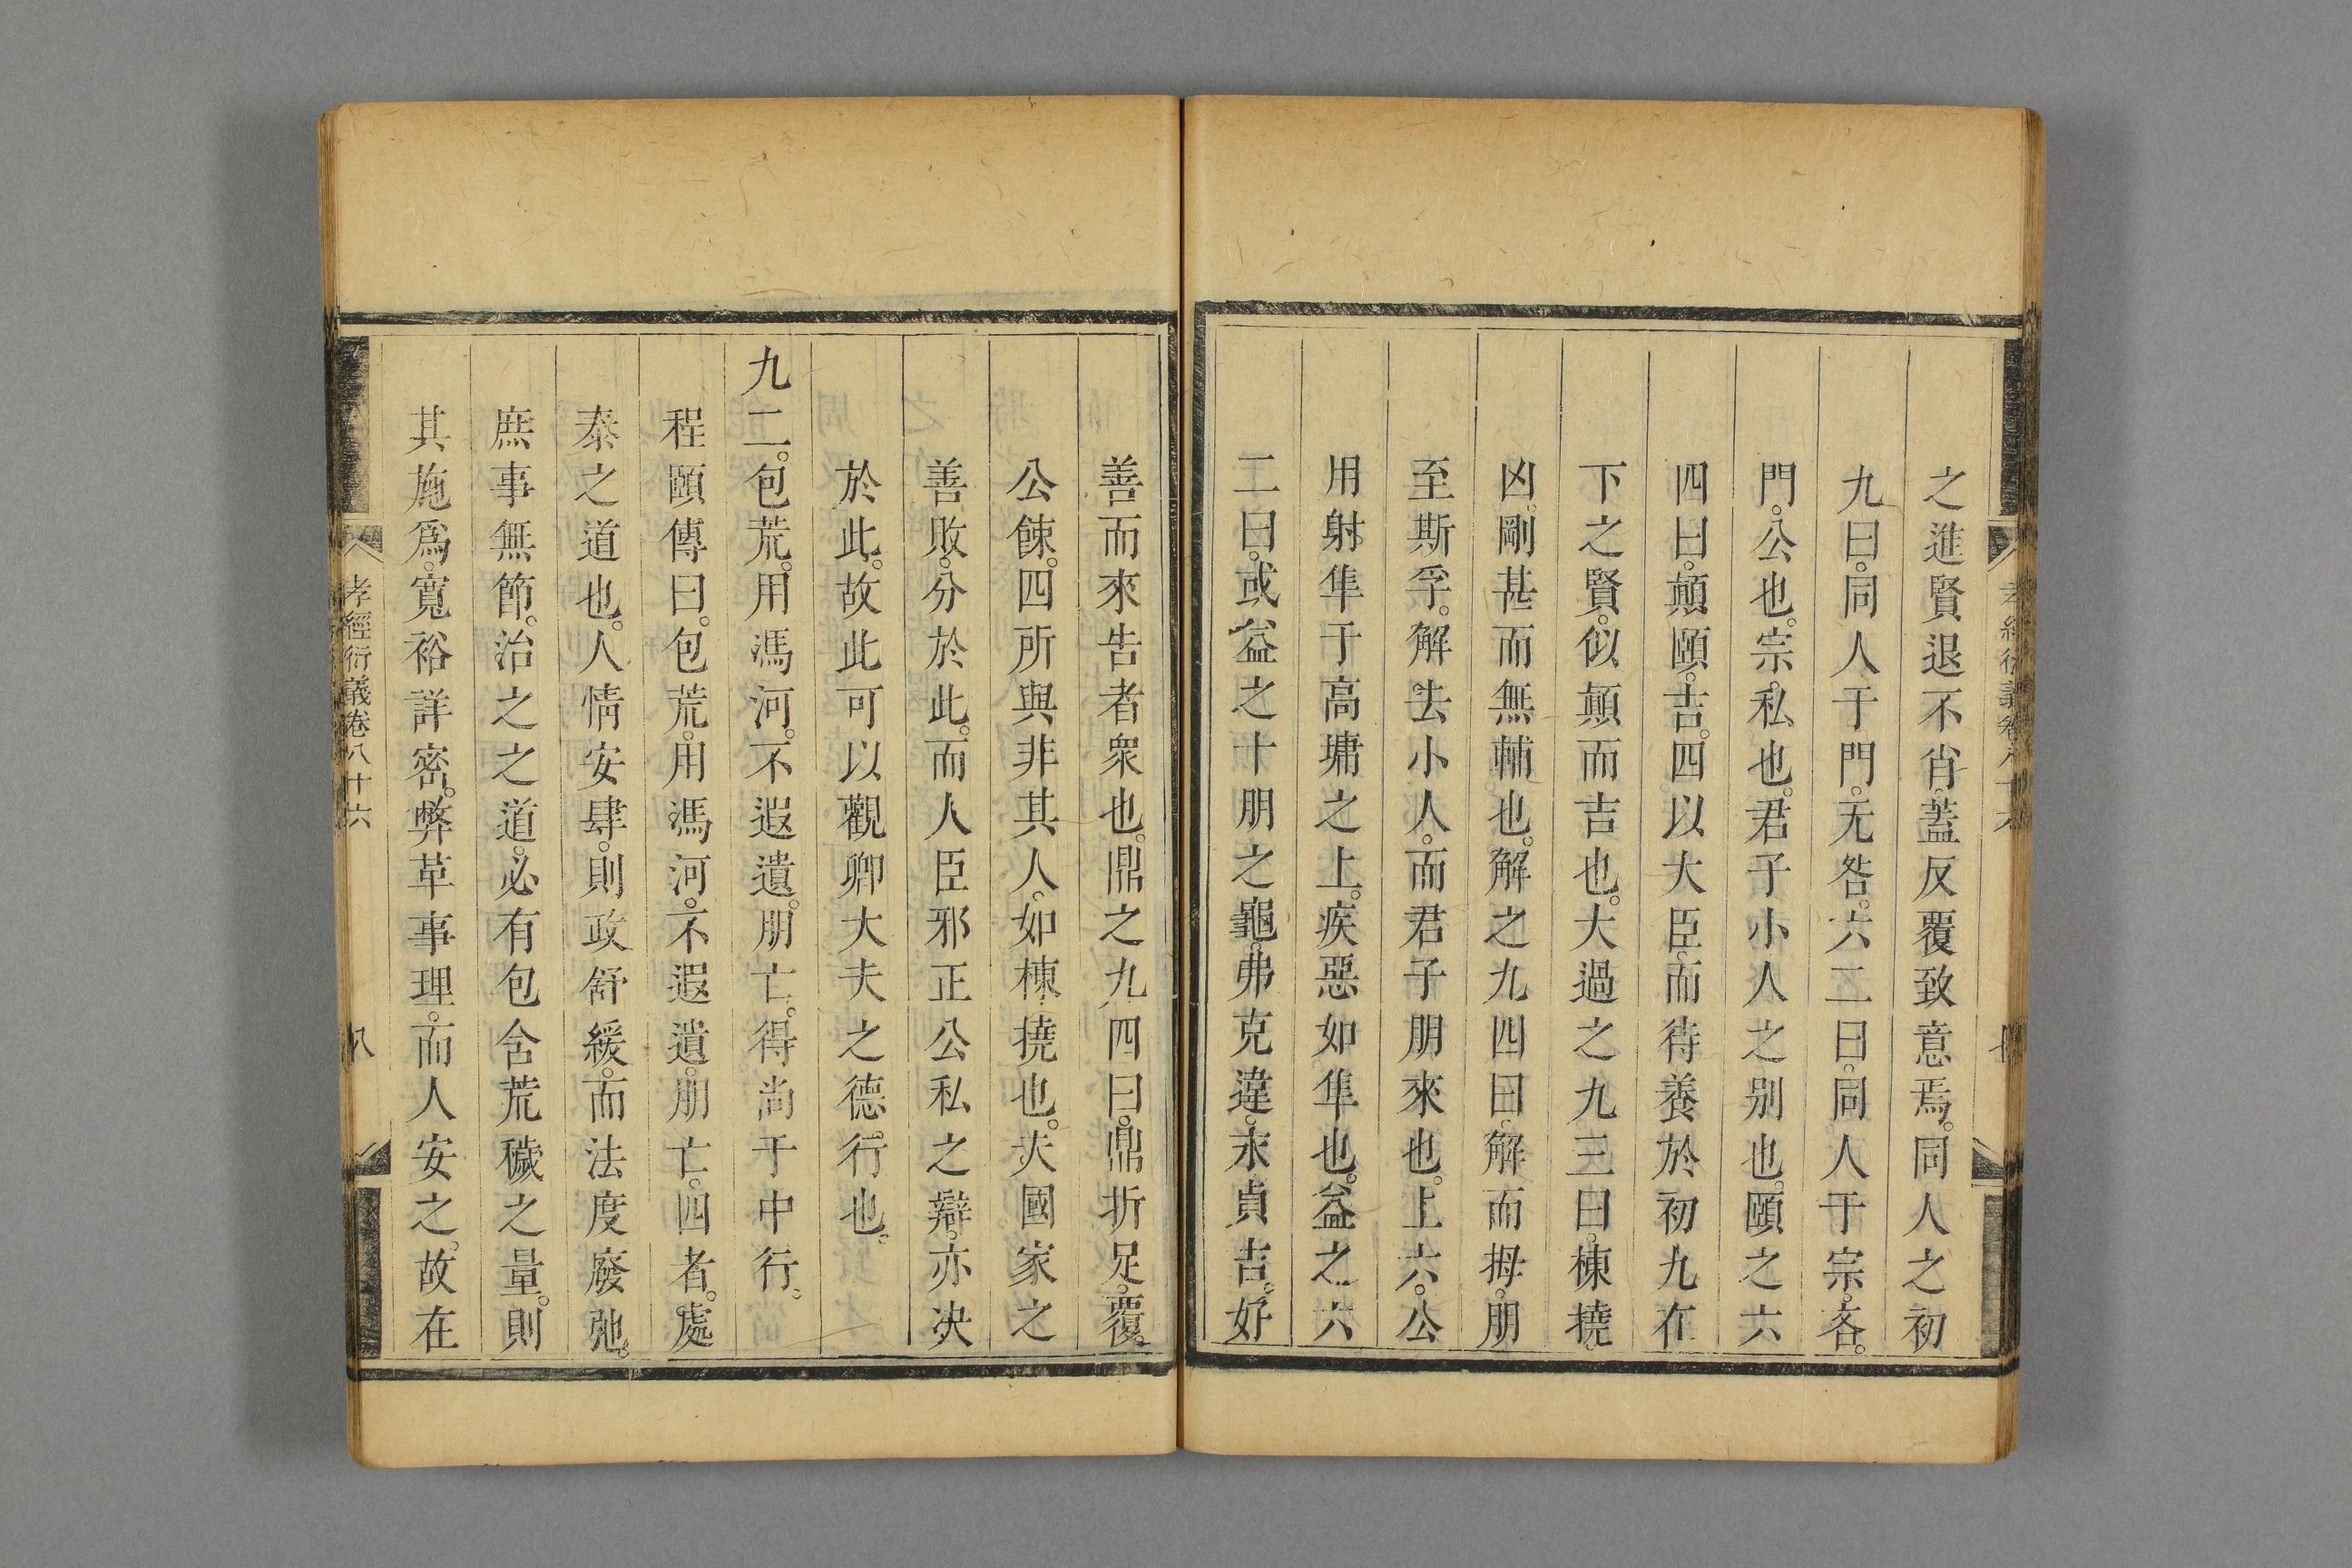 之進賢退不肖蓋反覆致意焉。同人之初
九曰。同人于門。无咎。六二曰。同人于宗。吝。
門。公也。宗。私也。君子小人之別也。頤之六
四曰。顛頤。吉。四以大臣。而待養於初九在
下之賢。似顛而吉也。大過之九三曰。棟撓。
凶。剛甚而無輔也。解之九四曰。解而拇。朋
至斯孚。解去小人。而君子朋來也。上六。公
用射隼于高墉之上。疾惡如隼也。益之六
二曰。或益之十朋之龜。弗克違。永貞吉。好
善而來告者衆也。鼎之九四曰。鼎折足。覆
公餗。四所與非其人。如棟撓也。夫國家之
善敗。分於此。而人臣邪正公私之辯。亦決
於此。故此可以觀卿大夫之德行也。
九二。包荒。用馮河。不遐遺。朋亡。得尚于中行。
程頤傳曰。包荒。用馮河。不遐遺。朋亡。四者。處
泰之道也。人情安肆。則政舒緩。而法度廢弛。
庶事無節。治之之道。必有包含荒穢之量。則
其施爲。寬裕詳密。弊革事理。而人安之。故在
孝經衍義卷八十六
八